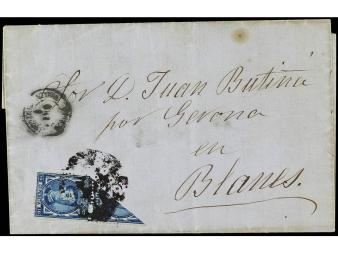 Sor D. Juan Butiná
por Gerona
en
Blanes.